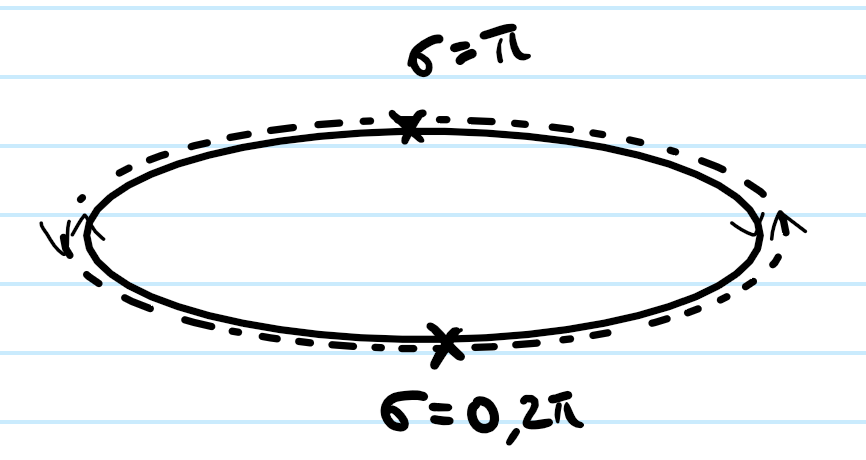 σ=π
σ=0,2π